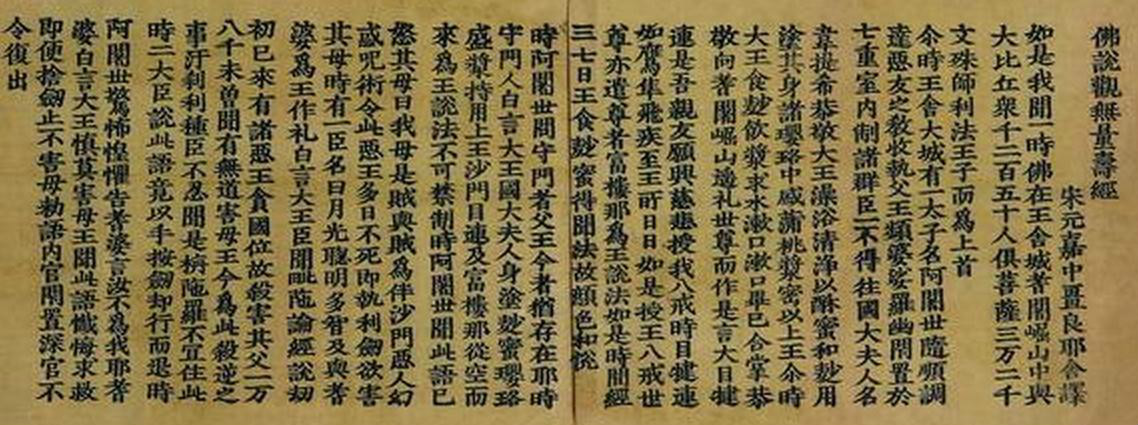 佛說觀無量壽經
宋元嘉中畺良耶舍譯
如是我聞一時佛在王舍城耆闍崛山中與
大比丘衆千二百五十人俱菩薩三万二千
文殊師利法王子而爲上首
尒時王舍大城有一太子名阿闍世隨順調
達惡友之教收執父王頻婆娑羅幽閇置於
七重室内制諸群臣一不得往國大夫人名
韋提希恭敬大王澡浴清淨以酥蜜和麨用
塗其身諸瓔珞中盛蒲桃漿密以上王尒時
大王食麨飲漿求水漱口漱口畢已合掌恭
敬向耆闍崛山遥礼世尊而作是言大目揵
連是吾親友願興慈悲授我八戒時目揵連
如鷹隼飛疾至王所日日如是授王八戒世
尊亦遣尊者富樓那爲王說法如是時閒經
三七日王食麨蜜得聞法故顔色和悅
時阿闍世問守門者父王今者猶存在耶時
守門人白言大王國大夫人身塗麨蜜瓔珞
盛漿持用上王沙門目連及富樓那從空而
來爲王說法不可禁制時阿闍世聞此語已
怒其母曰我母是賊與賊爲伴沙門惡人幻
或呪術令此惡王多日不死即執利劔欲害
其母時有一臣名曰月光聰明多智及與耆
婆爲王作礼白言大王臣聞毗陁論經說劫
初已來有諸惡王貪國位故殺害其父一万
八千未曾聞有無道害母王今爲此殺逆之
事汙刹利種臣不忍聞是栴陁羅不宜住此
時二大臣說此語竟以手按劔却行而退時
阿闍世驚怖惶懼告耆婆言汝不爲我耶耆
婆白言大王慎莫害母王聞此語懺悔求救
即便捨劔止不害母勑語内官閇置深宫不
令復出